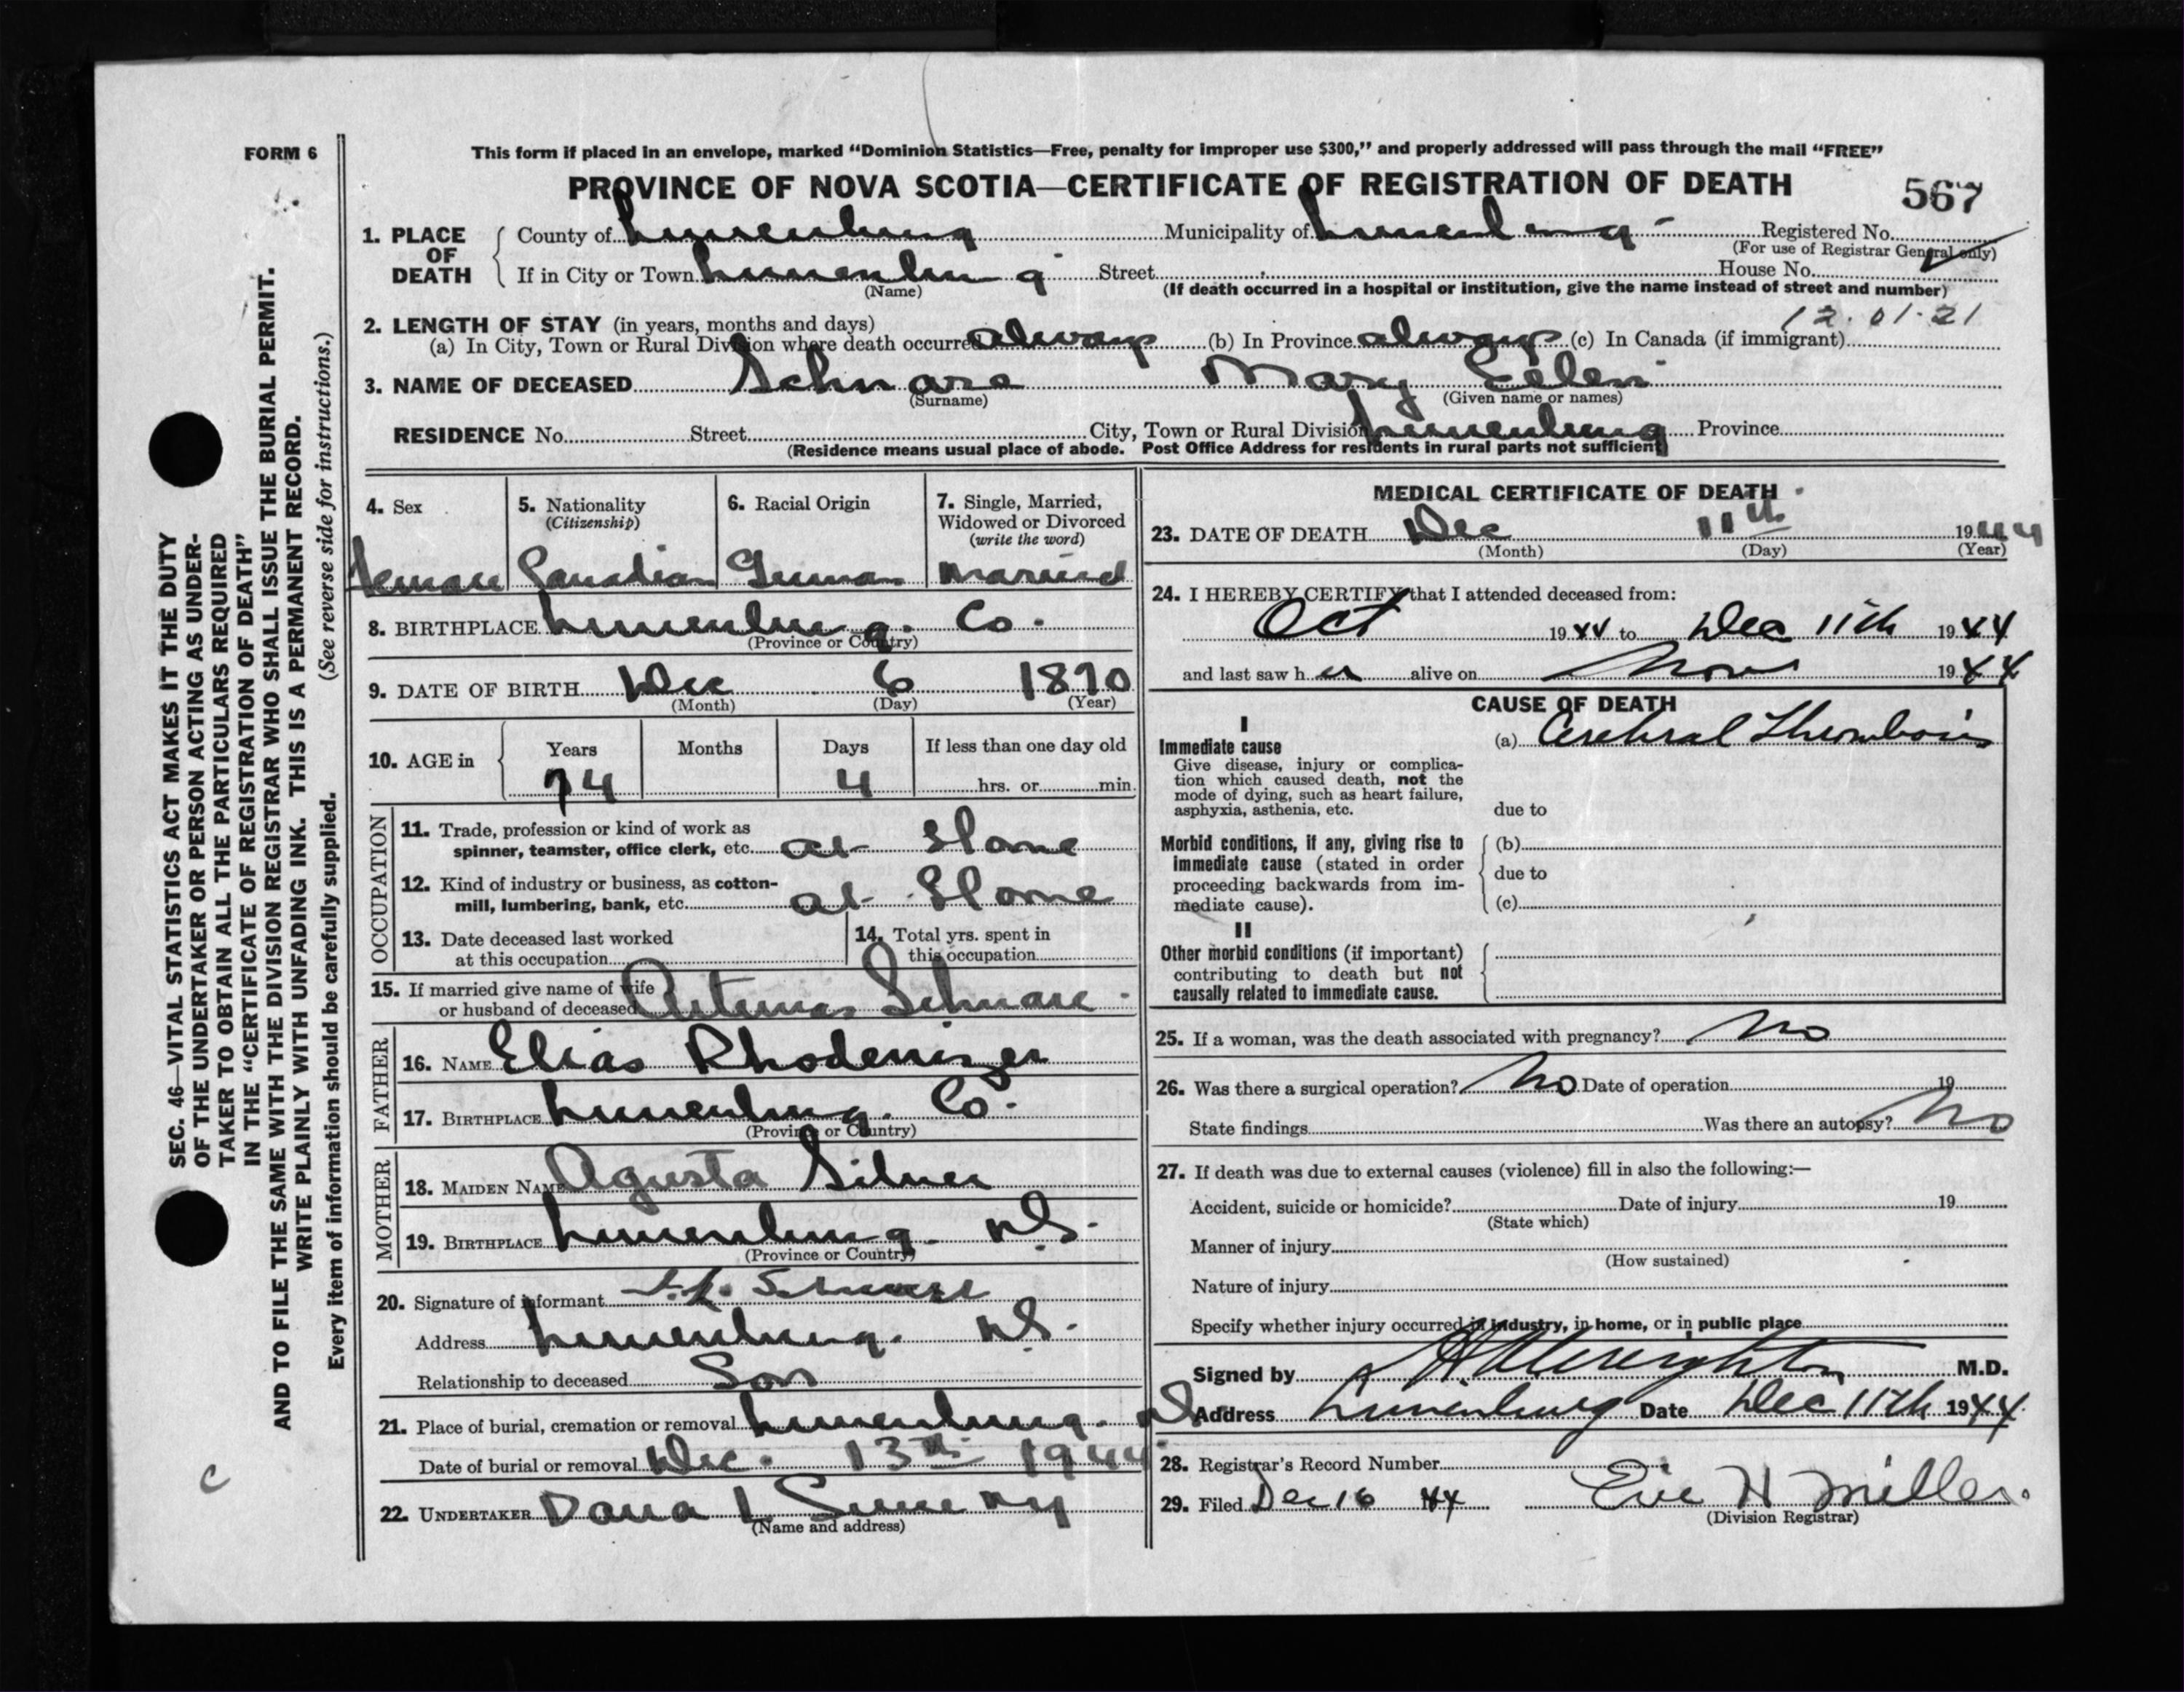 FORM 6
This form if placed in an envelope, marked “Dominion Statistics—Free, penalty for improper use $300,” and properly addressed will pass through the mail “FREE”
PROVINCE OF NOVA SCOTIA—CERTIFICATE OF REGISTRATION OF DEATH
567
1. PLACE OF DEATH
County of Lunenburg Municipality of Lunenburg Registered No.
(For use of Registrar General only)
If in City or Town Lunenburg Street House No.
(Name) (If death occurred in a hospital or institution, give the name instead of street and number)
12.01.21
2. LENGTH OF STAY (in years, months and days)
(a) In City, Town or Rural Division where death occurred always (b) In Province always (c) In Canada (if immigrant)
3. NAME OF DECEASED Schnare Mary Eelen
(Surname) (Given name or names)
RESIDENCE No. Street City, Town or Rural Division Lunenburg Province
(Residence means usual place of abode. Post Office Address for residents in rural parts not sufficient)
4. Sex 5. Nationality (Citizenship) 6. Racial Origin 7. Single, Married, Widowed or Divorced (write the word)
Female Canadian German Married
8. BIRTHPLACE Lunenburg. Co.
(Province or Country)
9. DATE OF BIRTH Dec 6 1870
(Month) (Day) (Year)
10. AGE in Years Months Days If less than one day old
74 4 hrs. or min.
OCCUPATION
11. Trade, profession or kind of work as
spinner, teamster, office clerk, etc. at Home
12. Kind of industry or business, as cotton-
mill, lumbering, bank, etc. at Home
13. Date deceased last worked
at this occupation
14. Total yrs. spent in
this occupation
15. If married give name of wife
or husband of deceased Artemas Schnare
FATHER
16. NAME Elias Rhodenizer
17. BIRTHPLACE Lunenburg. Co.
(Province or Country)
MOTHER
18. MAIDEN NAME Agusta Silver
19. BIRTHPLACE Lunenburg. N.S.
(Province or Country)
20. Signature of informant Schnare
Address Lunenburg. N.S.
Relationship to deceased Son
21. Place of burial, cremation or removal Lunenburg. N.S
Date of burial or removal Dec. 13th 1944
22. UNDERTAKER Dana L
(Name and address)
MEDICAL CERTIFICATE OF DEATH
23. DATE OF DEATH Dec 11th 1944
(Month) (Day) (Year)
24. I HEREBY CERTIFY that I attended deceased from:
Oct 1944 to Dec 11th 1944
and last saw her alive on Nov 1944
CAUSE OF DEATH
I
Immediate cause (a) Cerebral Thrombosis
Give disease, injury or complica-
tion which caused death, not the
mode of dying, such as heart failure,
asphyxia, asthenia, etc. due to
Morbid conditions, if any, giving rise to (b)
immediate cause (stated in order
proceeding backwards from im- due to
mediate cause). (c)
II
Other morbid conditions (if important)
contributing to death but not
causally related to immediate cause.
25. If a woman, was the death associated with pregnancy? No
26. Was there a surgical operation? No Date of operation 19
State findings Was there an autopsy? No
27. If death was due to external causes (violence) fill in also the following:—
Accident, suicide or homicide? Date of injury 19
(State which)
Manner of injury
(How sustained)
Nature of injury
Specify whether injury occurred in industry, in home, or in public place
Signed by M.D.
Address Lunenburg Date Dec 11th 1944
28. Registrar's Record Number
29. Filed Dec 16 44 H Miller.
(Division Registrar)
SEC. 46—VITAL STATISTICS ACT MAKES IT THE DUTY
OF THE UNDERTAKER OR PERSON ACTING AS UNDER-
TAKER TO OBTAIN ALL THE PARTICULARS REQUIRED
IN THE “CERTIFICATE OF REGISTRATION OF DEATH”
AND TO FILE THE SAME WITH THE DIVISION REGISTRAR WHO SHALL ISSUE THE BURIAL PERMIT.
WRITE PLAINLY WITH UNFADING INK. THIS IS A PERMANENT RECORD.
Every item of information should be carefully supplied. (See reverse side for instructions.)
C